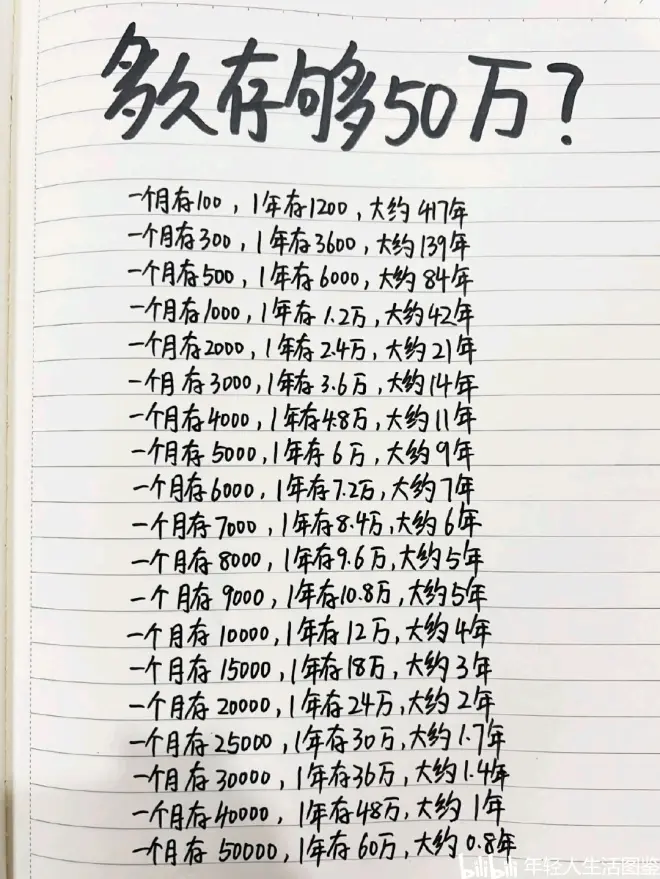 多久存够50万？
一个月存100，1年存1200，大约417年
一个月存300，1年存3600，大约139年
一个月存500，1年存6000，大约84年
一个月存1000，1年存1.2万，大约42年
一个月存2000，1年存2.4万，大约21年
一个月存3000，1年存3.6万，大约14年
一个月存4000，1年存4.8万，大约11年
一个月存5000，1年存6万，大约9年
一个月存6000，1年存7.2万，大约7年
一个月存7000，1年存8.4万，大约6年
一个月存8000，1年存9.6万，大约5年
一个月存9000，1年存10.8万，大约5年
一个月存10000，1年存12万，大约4年
一个月存15000，1年存18万，大约3年
一个月存20000，1年存24万，大约2年
一个月存25000，1年存30万，大约1.7年
一个月存30000，1年存36万，大约1.4年
一个月存40000，1年存48万，大约1年
一个月存50000，1年存60万，大约0.8年
bilibili 年轻人生活图鉴